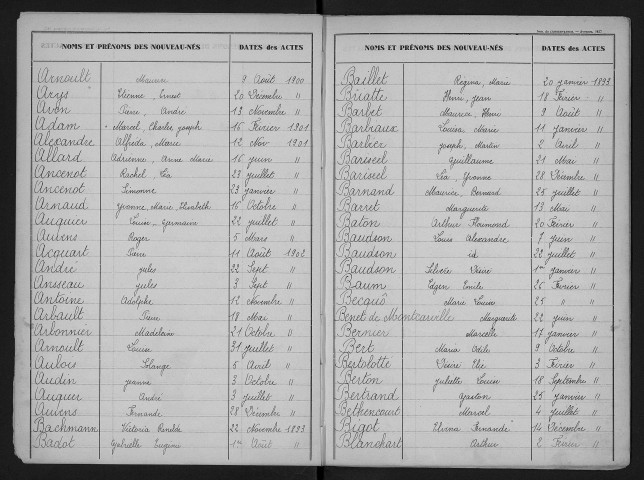 NOMS ET PRÉNOMS DES NOUVEAU-NÉS DATES des ACTES
Arnoult Maurice 9 Août 1900
Arys Etienne, Ernest 20 Décembre "
Avon Pierre, André 13 Novembre "
Adam Marcel Charles Joseph 16 Février 1901
Alexandre Alfréda, Marie 12 Nov 1901
Allard Adrienne, Anne Marie 16 juin "
Ancenot Rachel Léa 23 juillet "
Ancenot Simonne 23 janvier "
Arnaud Yvonne, Marie, Elisabeth 16 Octobre "
Auquier Louise, Germaine 22 juillet "
Auvens Roger 5 Mars "
Acquart Pierre 11 Août 1902
André jules 22 Sept "
Anseau jules 3 Sept "
Antoine Adolphe 12 Novembre "
Arbault Pierre 18 Mai "
Arbonnier Madeleine 21 Octobre "
Arnoult Louise 31 juillet "
Aubois Solange 5 Avril "
Audin jeanne 3 Octobre "
Auquier André 3 juillet "
Auvens Fernande 28 Décembre "
Bachmann Victoria 22 Novembre 1893
Badot Gabrielle Eugénie 1er Août "
NOMS ET PRÉNOMS DES NOUVEAU-NÉS DATES des ACTES
Baillet Regina, Marie 20 janvier 1893
Briatte Henri, jean 18 Février "
Barbet Maurice Henri 9 Août "
Barbiaux Louisa Marie 11 janvier "
Barbier joseph, Martin 2 Avril "
Bariseel Guillaume 21 Mai "
Bariseel Léa, Yvonne 28 Décembre "
Barnand Maurice, Bernard 25 juillet "
Barret Marguerite 13 Mai "
Baton Arthur Floumond 20 Février "
Baudson Louis Alexandre 7 juin "
Baudson id 22 juillet "
Baudson Silvère Désiré 1er janvier "
Baum Edgen Emile 26 Février "
Becquis Marie Louise 25 " "
Benet de Montcarville Marguerite 22 juin "
Bernier Marcelle 17 janvier "
Bert Maria Odile 9 Octobre "
Bertolotte Désiré Elie 3 Février "
Berton Juliette Louise 18 Septembre "
Bertrand Gaston 25 janvier "
Bethencourt Marcel 4 juillet "
Bigot Elvina Fernande 14 Décembre "
Blanchart Arthur 2 Février "